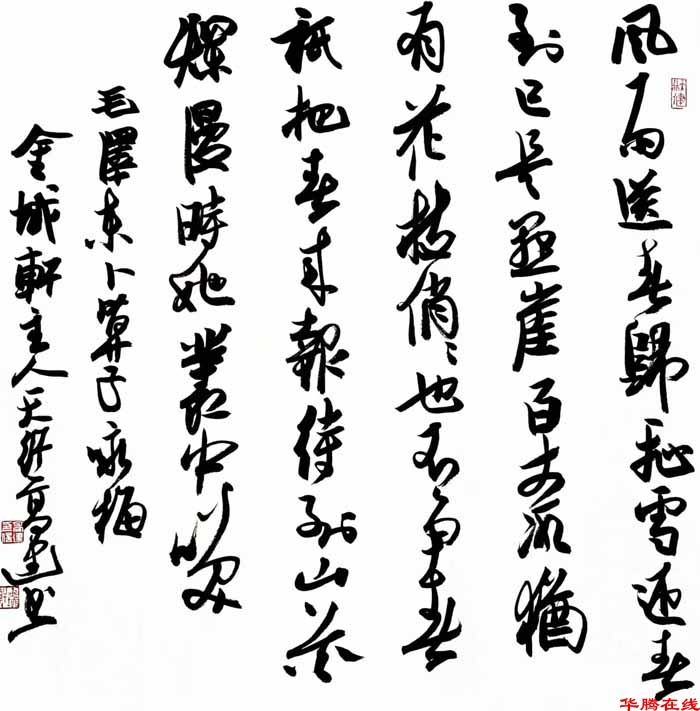 風雨送春歸飛雪迎春
到已是懸崖百丈冰猶
有花枝俏〻也不爭春
祇把春來報待到山花
爛漫時她叢中笑
毛澤東卜算子咏梅
金城軒主人天津高建书
华腾在线